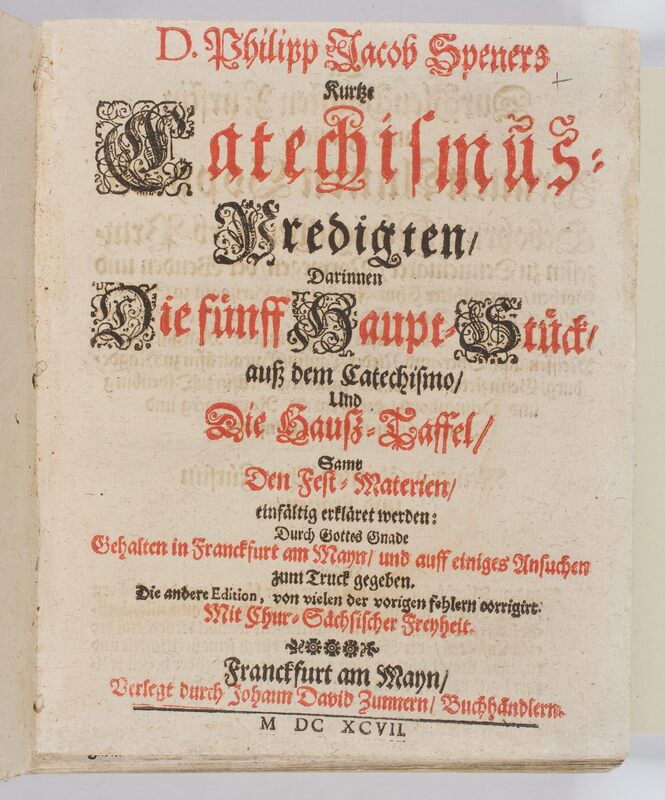 D. Philipp Jacob Speners
Kurtze
Catechismũs-
Predigten/
Darinnen
Die fünff Haupt-Stück/
auß dem Catechismo/
Und
Die Hauß-Taffel/
Samt
Den Fest-Materien/
einfältig erkläret werden:
Durch Gottes Gnade
Gehalten in Franckfurt am Mayn/ und auff einiges Ansuchen
zum Truck gegeben.
Die andere Edition, von vielen der vorigen fehlern corrigirt.
Mit Chur-Sächsischer Freyheit.
Franckfurt am Mayn/
Verlegt durch Johann David Zunnern/ Buchhändlern.
M DC XCVII.